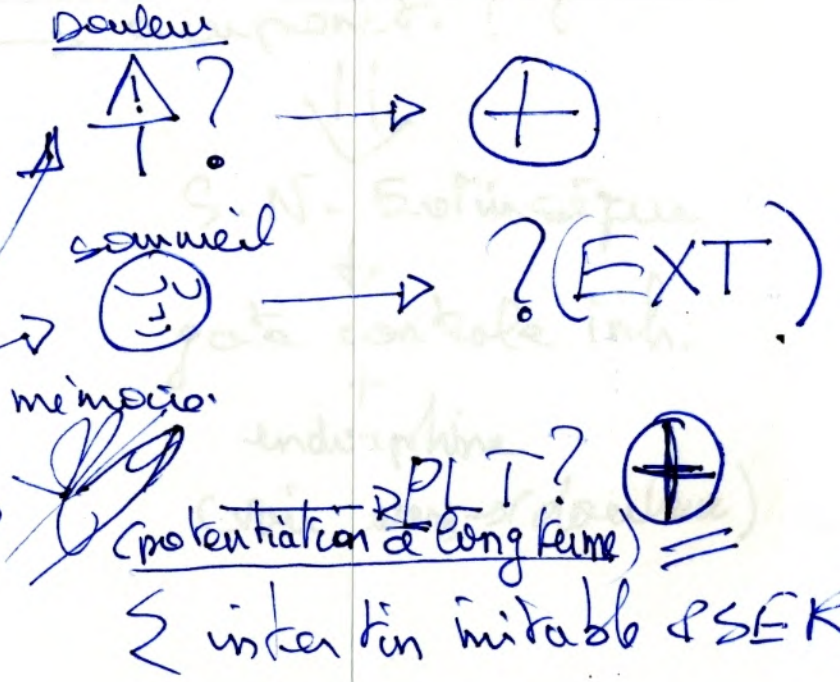 Douleur
! ? → +
sommeil
→ ? (EXT.)
mémoire
→ PLT ? +
(potentiation à long terme) =
Σ intestin irritable